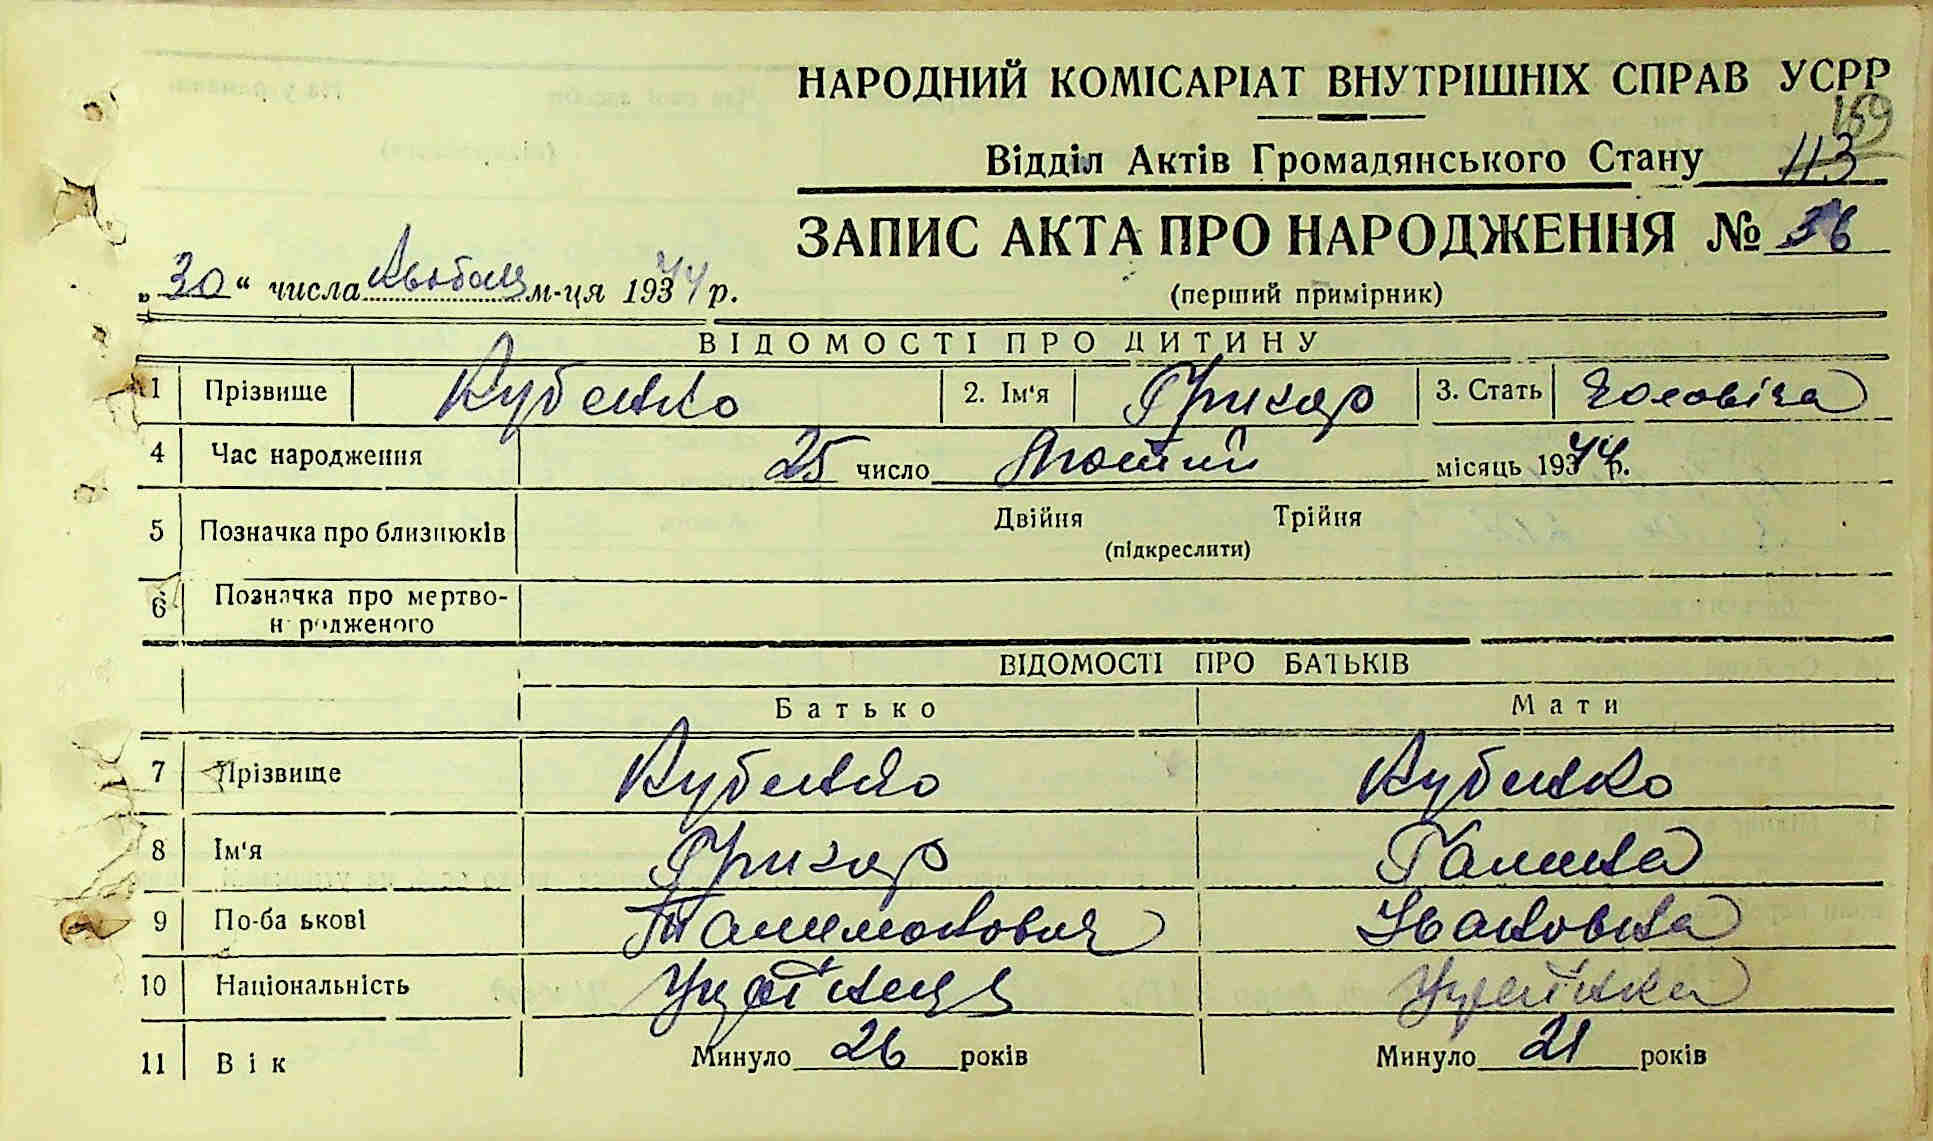 НАРОДНИЙ КОМІСАРІАТ ВНУТРІШНІХ СПРАВ УСРР
159
Відділ Актів Громадянського Стану 113
ЗАПИС АКТА ПРО НАРОДЖЕННЯ № 36
„30“ числа м-ця 1944 р.
(перший примірник)
ВІДОМОСТІ ПРО ДИТИНУ
1 Прізвище Кубенко 2. Ім'я Григор 3. Стать Чоловіча
4 Час народження 25 число Лютий місяць 1944 р.
5 Позначка про близнюків Двійня Трійня
(підкреслити)
6 Позначка про мертво-
н родженого
ВІДОМОСТІ ПРО БАТЬКІВ
Батько Мати
7 Прізвище Кубенко Кубенко
8 Ім'я Григор Галина
9 По-ба ькові Івановна
10 Національність Українець Українка
11 Вік Минуло 26 років Минуло 21 років